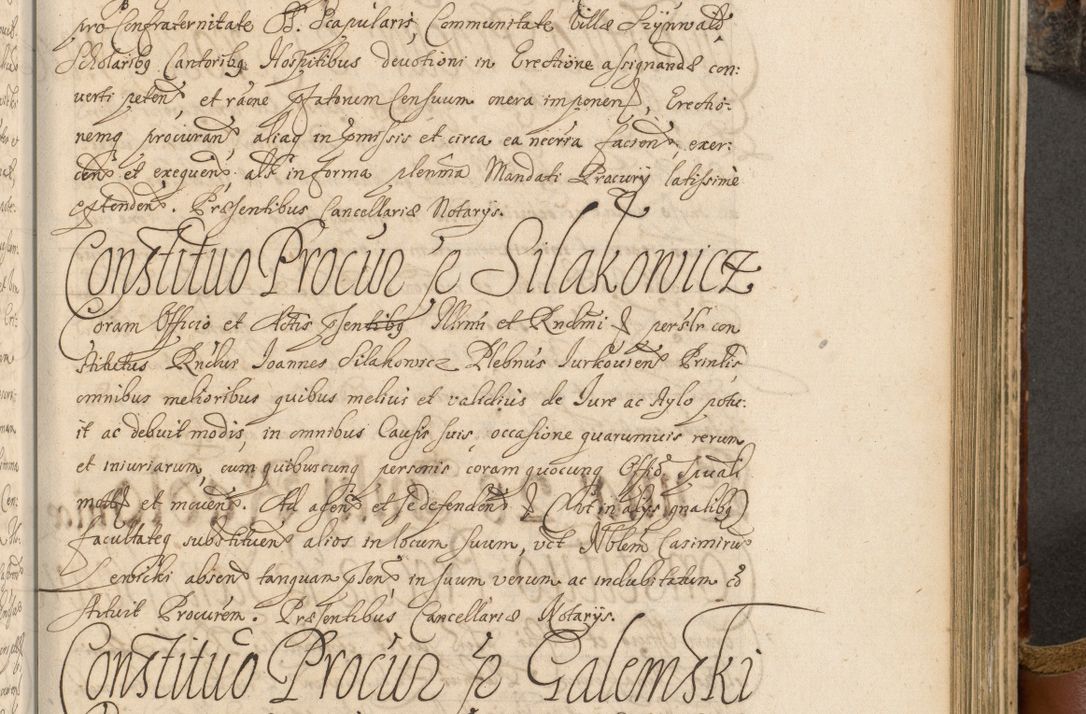 pro Confraternitate SS. Scapularis, Communitate Villæ Szÿnwałd,
Scholaribq Cantoribq Hospitibus devotioni in Erectione assignandæ con:
verti peten, et raõne pfatorum Censuum onera imponen, Erectio:
nemq procuran, aliaq in pmissis et circa ea necria facien, exer:
cen et exequen als in forma plenma Mandati Procurÿ latissime
extenden. Præsentibus Cancellariæ Notarÿs.
Constituo Procur p Silakowicz
Coram Officio et Actis psentibq Illrmi et Rndmi & perslr con
stitutus Rndus Joannes Silakowicz Plebnus Jurkovien Prinlis
omnibus melioribus quibus melius et validius de Jure ac stylo potu:
it ac debuit modis, in omnibus Causis suis, occasione quarumvis rerum
et iniuriarum, cum quibuscunq personis coram quocunq Offo, Iudli
motis et moven. Ad agen et se defenden & (Aut in alÿs qnalibq)
facultateq substituen alios in locum suum, vct Nblem Casimirum
absen tanquam psen in suum verum ac indubitatum co
stituit Procurem. Præsentibus Cancellariæ Notarÿs.
Constituo Procur p Galemski